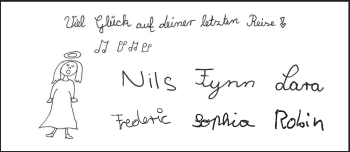 Viel Glück auf deiner letzten Reise!
Nils Fynn Lara
Frederic Sophia Robin